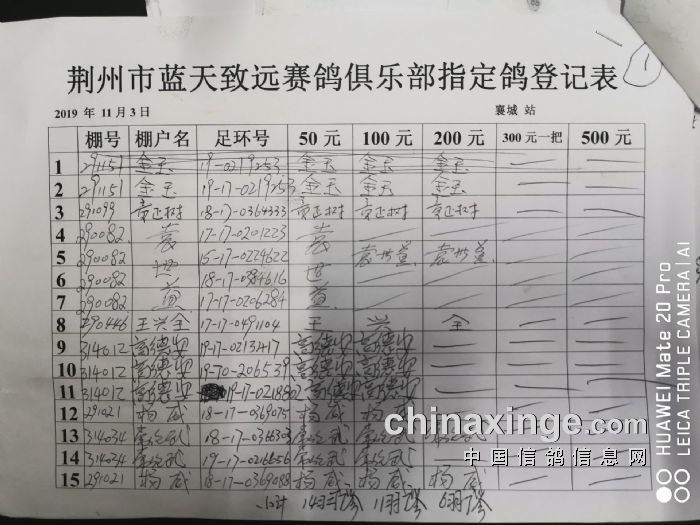 ①
荆州市蓝天致远赛鸽俱乐部指定鸽登记表
2019 年 11月3日 襄城 站
棚号 棚户名 足环号 50元 100元 200元 300元一把 500元
1 291151 金玉 19-0219253 金玉 金玉 金玉 — —
2 291151 金玉 19-17-0219253 金玉 金玉 金玉 — —
3 291099 18-17-0364333
4 290082 袁 17-17-0201223 袁
5 290082 世 15-17-0224622
6 290082 18-17-0384616 世
7 290082 17-17-0206284
8 290446 王兴全 17-17-0491104 王 兴 全
9 314012 高德安 19-17-0213417 高德安 高德安 — — —
10 314012 高德安 19-70-206539 高德安 高德安 — — —
11 314012 高德安 高德安 高德安 — — —
12 291021 杨威 18-17-0369075 杨威 杨威
13 314034 18-17-0366303
14 314034 19-17-0216656
15 291021 杨威 18-17-0369088 杨威 杨威 杨威
小计
chinaxinge.com
中国信鸽信息网
HUAWEI Mate 20 Pro
LEICA TRIPLE CAMERA | AI